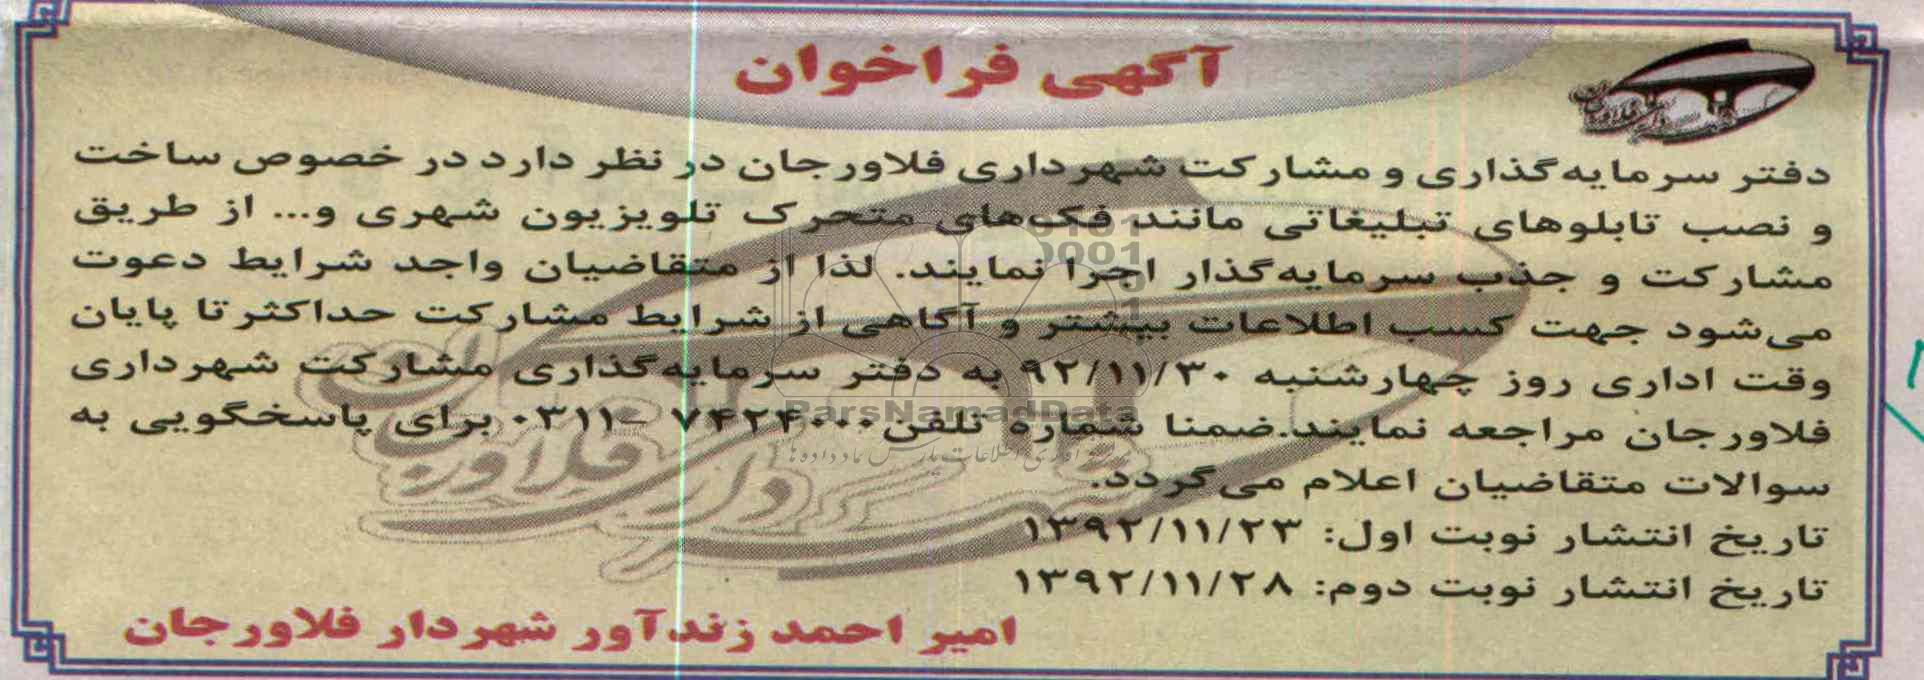 آگهی فراخوان
دفتر سرمایه‌گذاری و مشارکت شهرداری فلاورجان در نظر دارد در خصوص ساخت
و نصب تابلوهای تبلیغاتی مانند فک‌های متحرک تلویزیون شهری و... از طریق
مشارکت و جذب سرمایه‌گذار اجرا نمایند. لذا از متقاضیان واجد شرایط دعوت
می‌شود جهت کسب اطلاعات بیشتر و آگاهی از شرایط مشارکت حداکثر تا پایان
وقت اداری روز چهارشنبه ۹۲/۱۱/۳۰ به دفتر سرمایه‌گذاری مشارکت شهرداری
فلاورجان مراجعه نمایند.ضمنا شماره تلفن ۷۴۲۴۰۰۰ -۰۳۱۱ برای پاسخگویی به
سوالات متقاضیان اعلام می‌گردد.
تاریخ انتشار نوبت اول: ۱۳۹۲/۱۱/۲۳
تاریخ انتشار نوبت دوم: ۱۳۹۲/۱۱/۲۸
امیر احمد زندآور شهردار فلاورجان
ParsNamadData